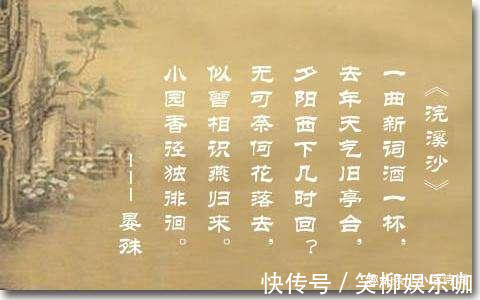 《浣溪沙》
一曲新词酒一杯，
去年天气旧亭台，
夕阳西下几时回？
无可奈何花落去，
似曾相识燕归来。
小园香径独徘徊。
---晏殊
快传号／笑柳娱乐咖